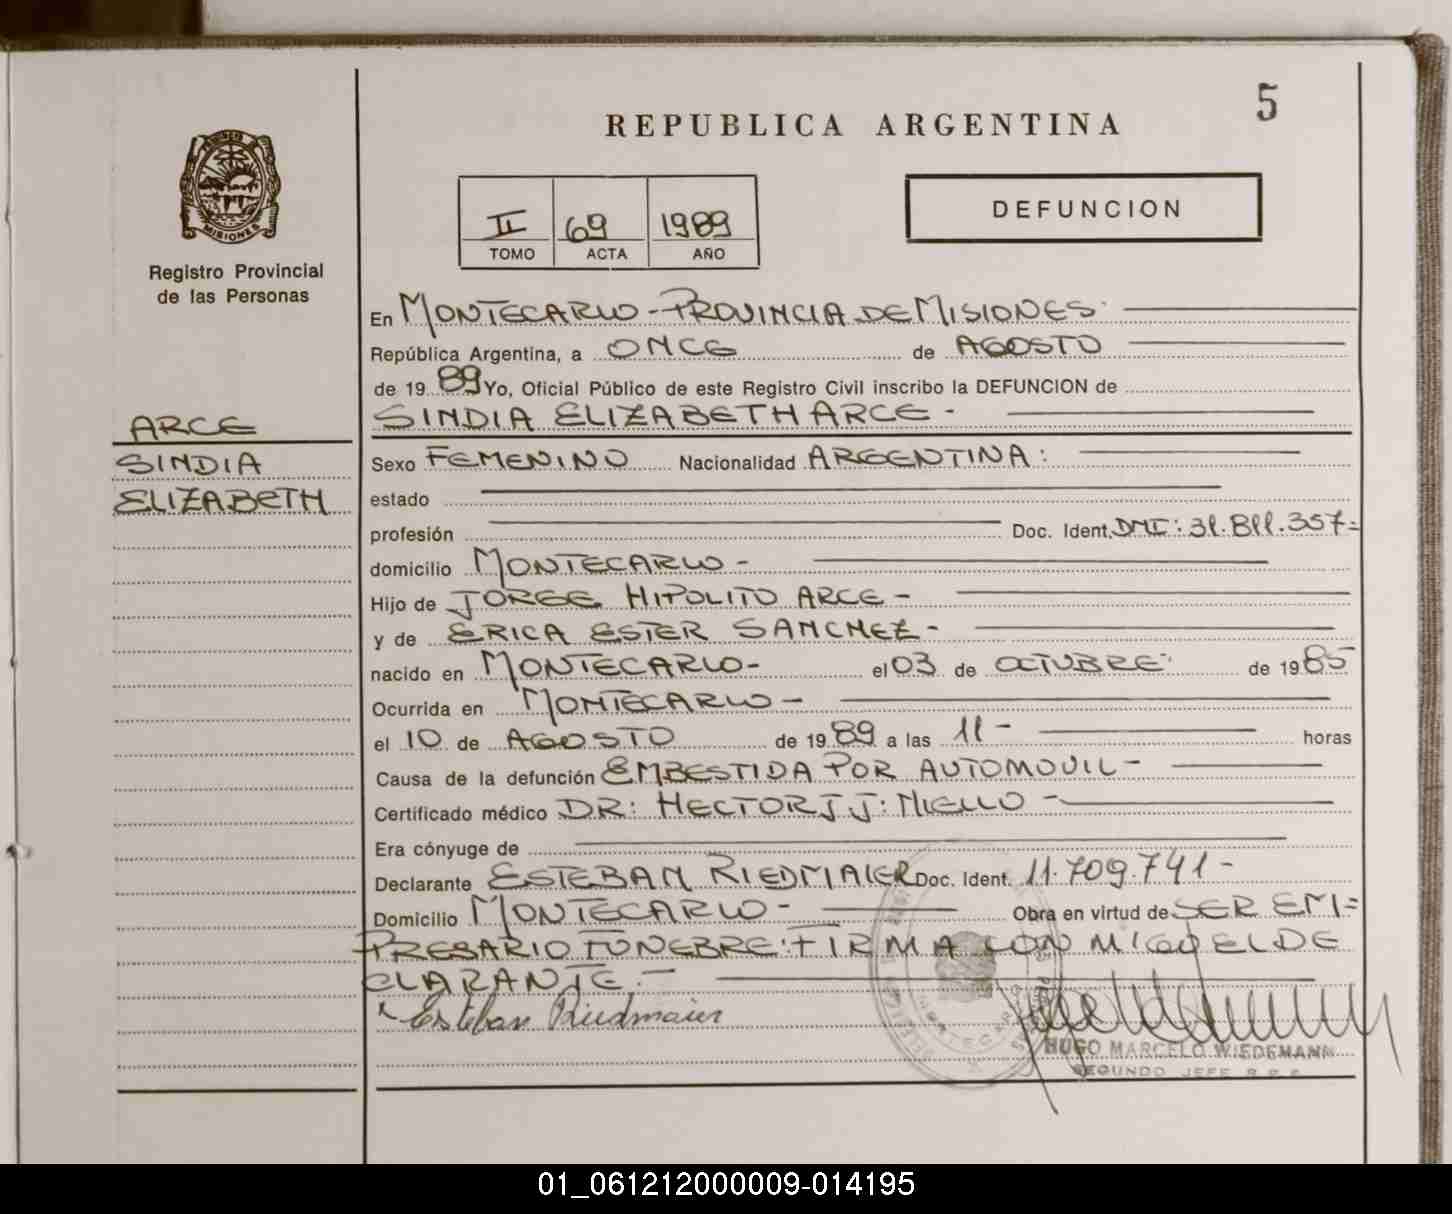 5
REPUBLICA ARGENTINA
PROVINCIA
MISIONES
Registro Provincial
de las Personas
II 69 1989
TOMO ACTA AÑO
DEFUNCION
En MONTECARLO - PROVINCIA DE MISIONES
República Argentina, a ONCE de AGOSTO
de 1989 Yo, Oficial Público de este Registro Civil inscribo la DEFUNCION de
SINDIA ELIZABETH ARCE -
ARCE
SINDIA
ELIZABETH
Sexo FEMENINO Nacionalidad ARGENTINA:
estado
profesión Doc. Ident. DNI: 31.811.357=
domicilio MONTECARLO -
Hijo de JORGE HIPOLITO ARCE -
y de ERICA ESTER SANCHEZ -
nacido en MONTECARLO - el 03 de OCTUBRE de 1985
Ocurrida en MONTECARLO -
el 10 de AGOSTO de 1989 a las 11 - horas
Causa de la defunción EMBESTIDA POR AUTOMOVIL -
Certificado médico DR: HECTOR J J: MIELLO -
Era cónyuge de
Declarante ESTEBAN RIEDMAIER Doc. Ident. 11.709.741 -
Domicilio MONTECARLO - Obra en virtud de SER EM=
PRESARIO FUNEBRE: FIRMA CON MIGO EL DE
CLARANTE. -
Esteban Riedmaier
MONTECARLO
HUGO MARCELO WIEDEMANN
SEGUNDO JEFE R.P.P.
01_061212000009-014195